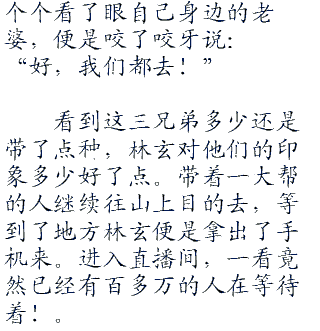 个个看了眼自己身边的老
婆，便是咬了咬牙说：
“好，我们都去！”
看到这三兄弟多少还是
带了点种，林玄对他们的印
象多少好了点。带着一大帮
的人继续往山上目的去，等
到了地方林玄便是拿出了手
机来。进入直播间，一看竟
然已经有百多万的人在等待
着！。